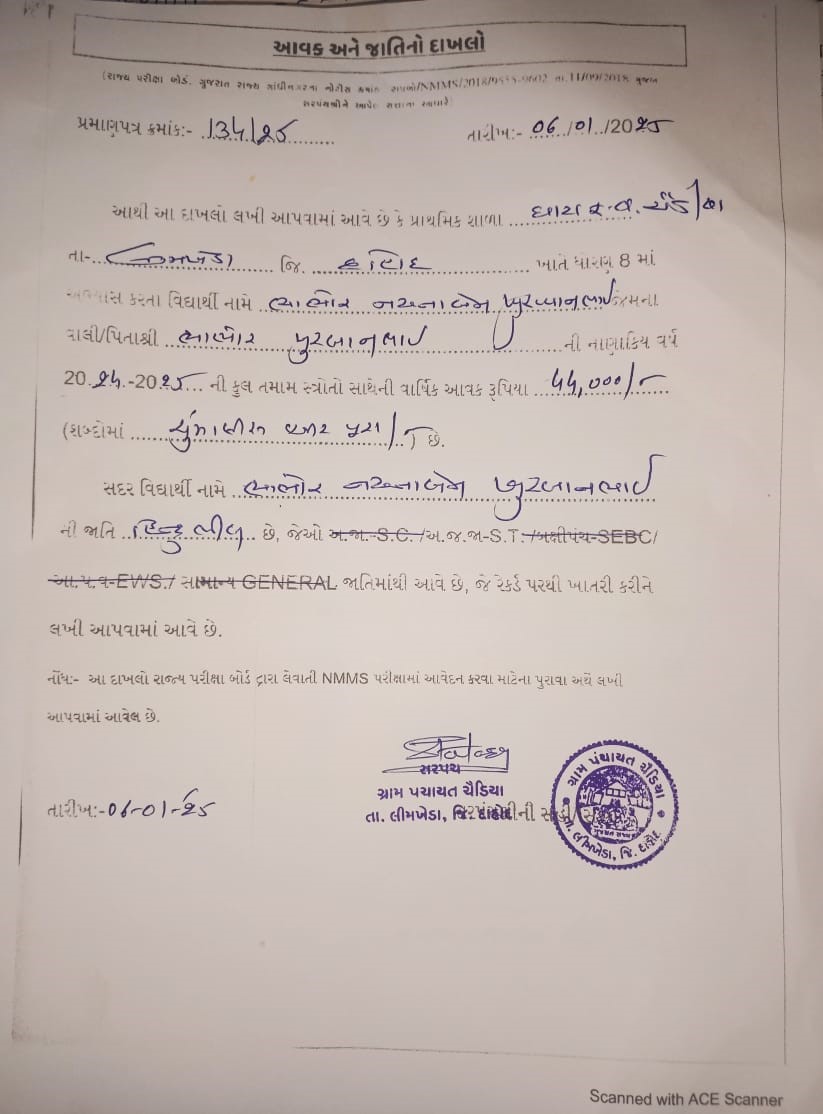 આવક અને જાતિનો દાખલો
(રાજ્ય પરીક્ષા બોર્ડ, ગુજરાત રાજ્ય ગાંધીનગરના નોટીસ ક્રમાંક રાપબો/NMMS/2018/9555-9602 તા.11/09/2018 મુજબ
સરપંચશ્રીને આપેલ સત્તાના આધારે)
પ્રમાણપત્ર ક્રમાંક:- 134/25 તારીખ:- 06/01/2025
આથી આ દાખલો લખી આપવામાં આવે છે કે પ્રાથમિક શાળા
તા- લીમખેડા જિ. દાહોદ ખાતે ધોરણ 8 માં
અભ્યાસ કરતા વિદ્યાર્થી નામે ભાભોર નયનાબેન જેમના
વાલી/પિતાશ્રી ભાભોર ની નાણાકિય વર્ષ
2024-2025 ની કુલ તમામ સ્ત્રોતો સાથેની વાર્ષિક આવક રૂપિયા 44,000/-
(શબ્દોમાં ચુંમાલીસ હજાર પુરા/- ) છે.
સદર વિદ્યાર્થી નામે ભાભોર નયનાબેન
ની જાતિ હિન્દુ ભીલ છે, જેઓ અ.જા.-S.C./અ.જ.જા-S.T./બક્ષીપંચ-SEBC/
આ.પ.વ-EWS./ સામાન્ય GENERAL જાતિમાંથી આવે છે, જે રેકર્ડ પરથી ખાતરી કરીને
લખી આપવામાં આવે છે.
નોંધ:- આ દાખલો રાજ્ય પરીક્ષા બોર્ડ દ્વારા લેવાતી NMMS પરીક્ષામાં આવેદન કરવા માટેના પુરાવા અર્થે લખી
આપવામાં આવેલ છે.
સરપંચ
ગ્રામ પંચાયત ચૈડિયા
તારીખ:-06-01-25 તા. લીમખેડા, જિ. દાહોદ
ગ્રામ પંચાયત ચૈડિયા
તા. લીમખેડા, જિ. દાહોદ
Scanned with ACE Scanner